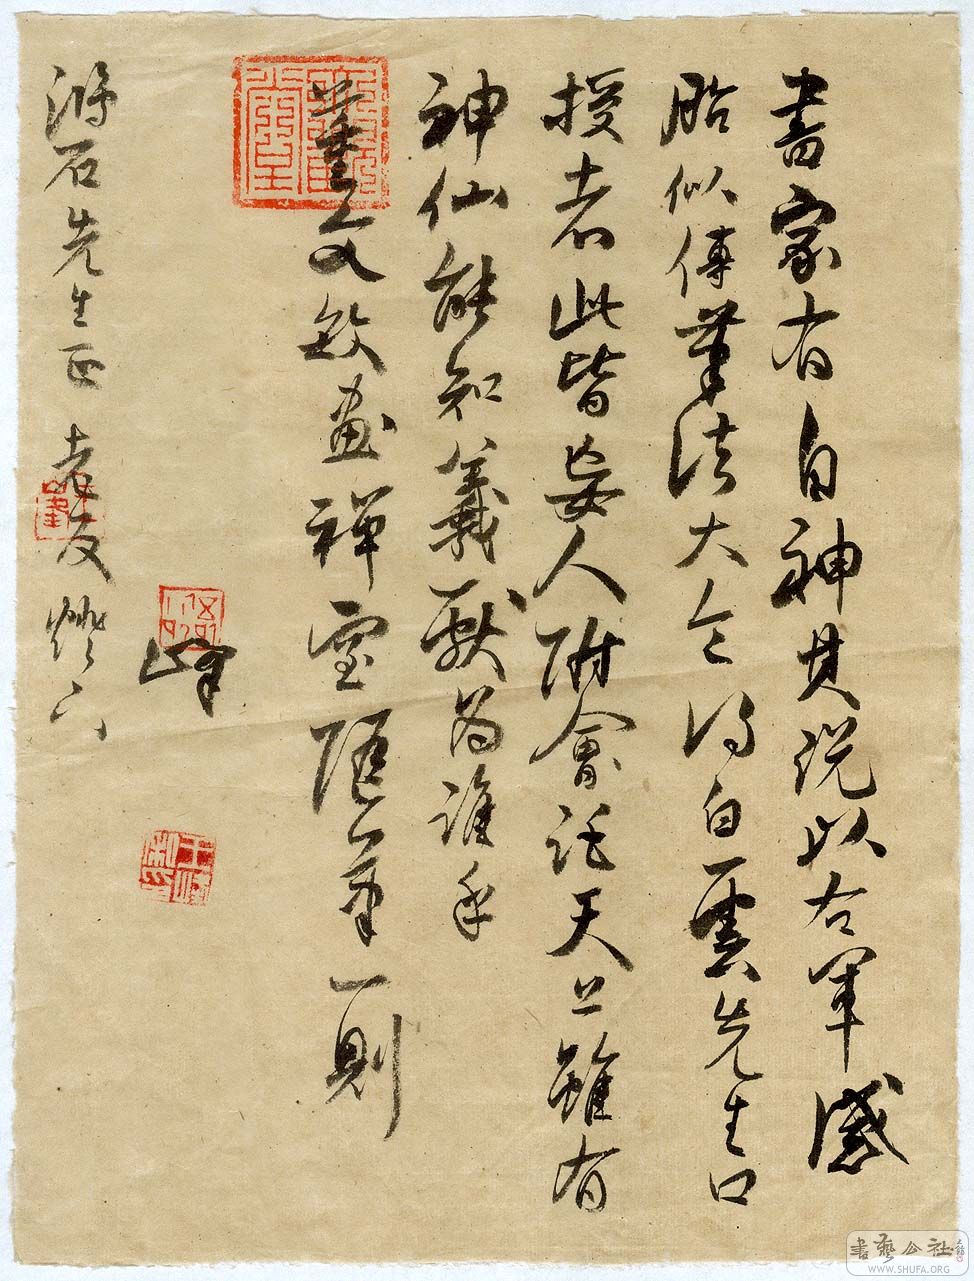 書家有自神其說以右軍感
胎似傳筆法大令得白雲先生口
授者此皆妄人附會天上雖有
神仙能知羲獻為誰乎
董文敏畫禪室隨筆一則
峰
石先生正 老友燈下
書藝公社
WWW.SHUFA.ORG